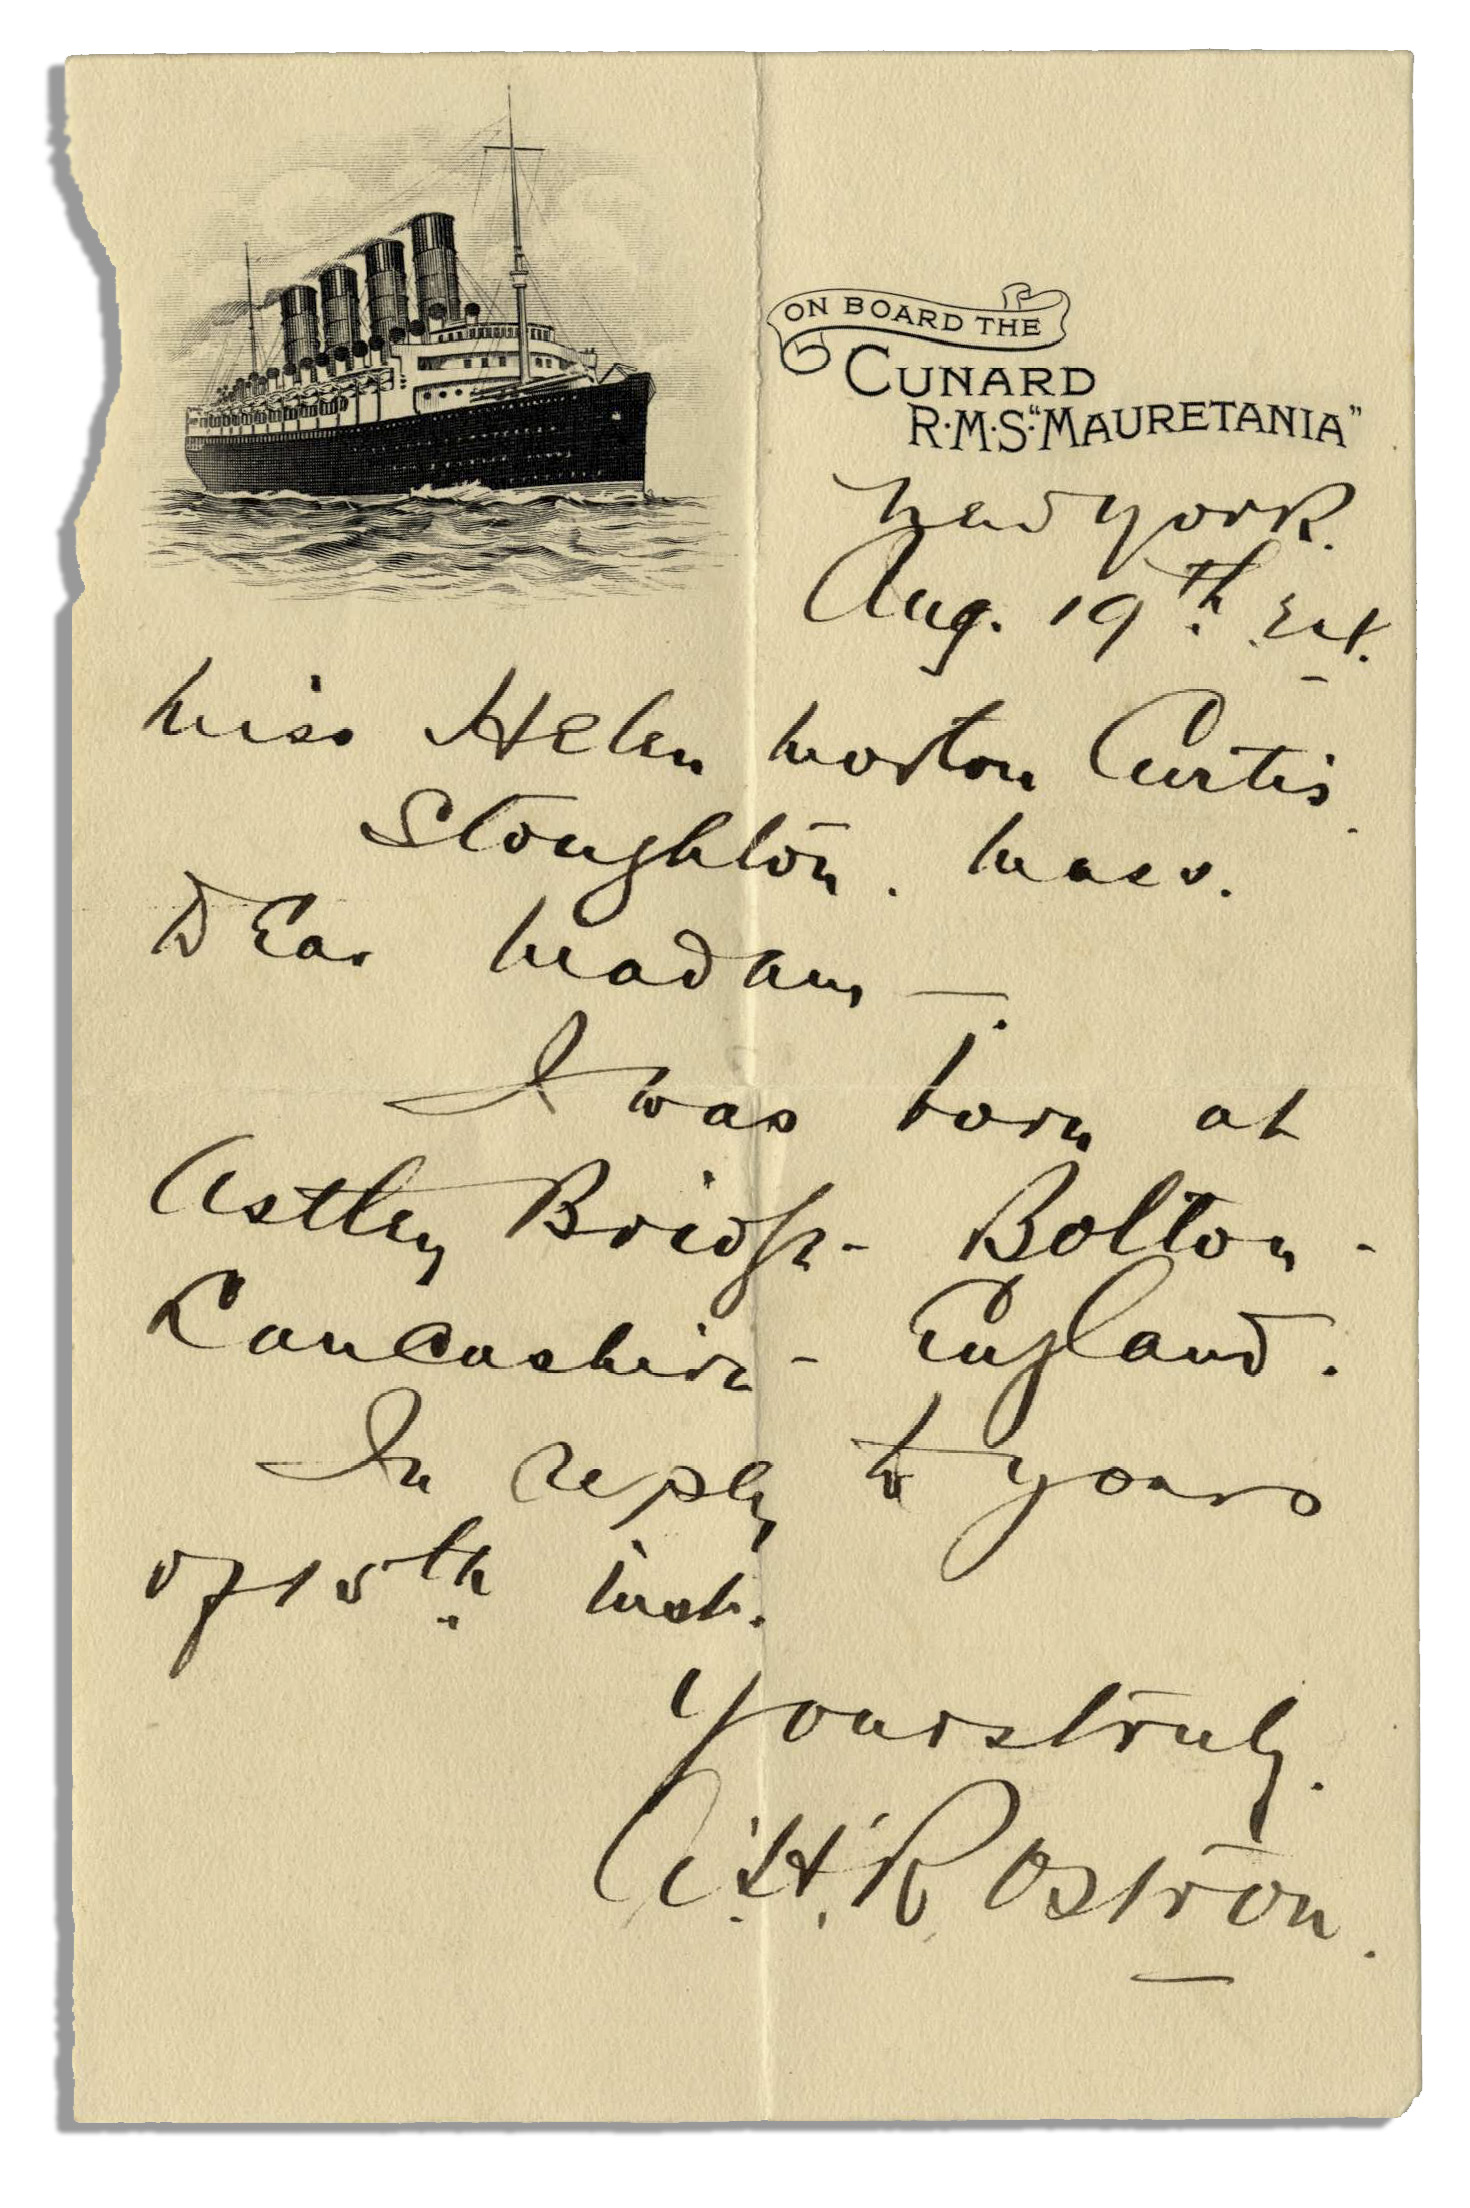 ON BOARD THE
CUNARD
R.M.S. "MAURETANIA"
New York.
Aug. 19th
Miss Helen Morton Curtis.
Stoughton. Mass.
Dear Madam —.
I was born at
Astley Bridge - Bolton -
Lancashire - England.
In reply to yours
of 15th inst.
Yours truly.
A. H. Rostron.